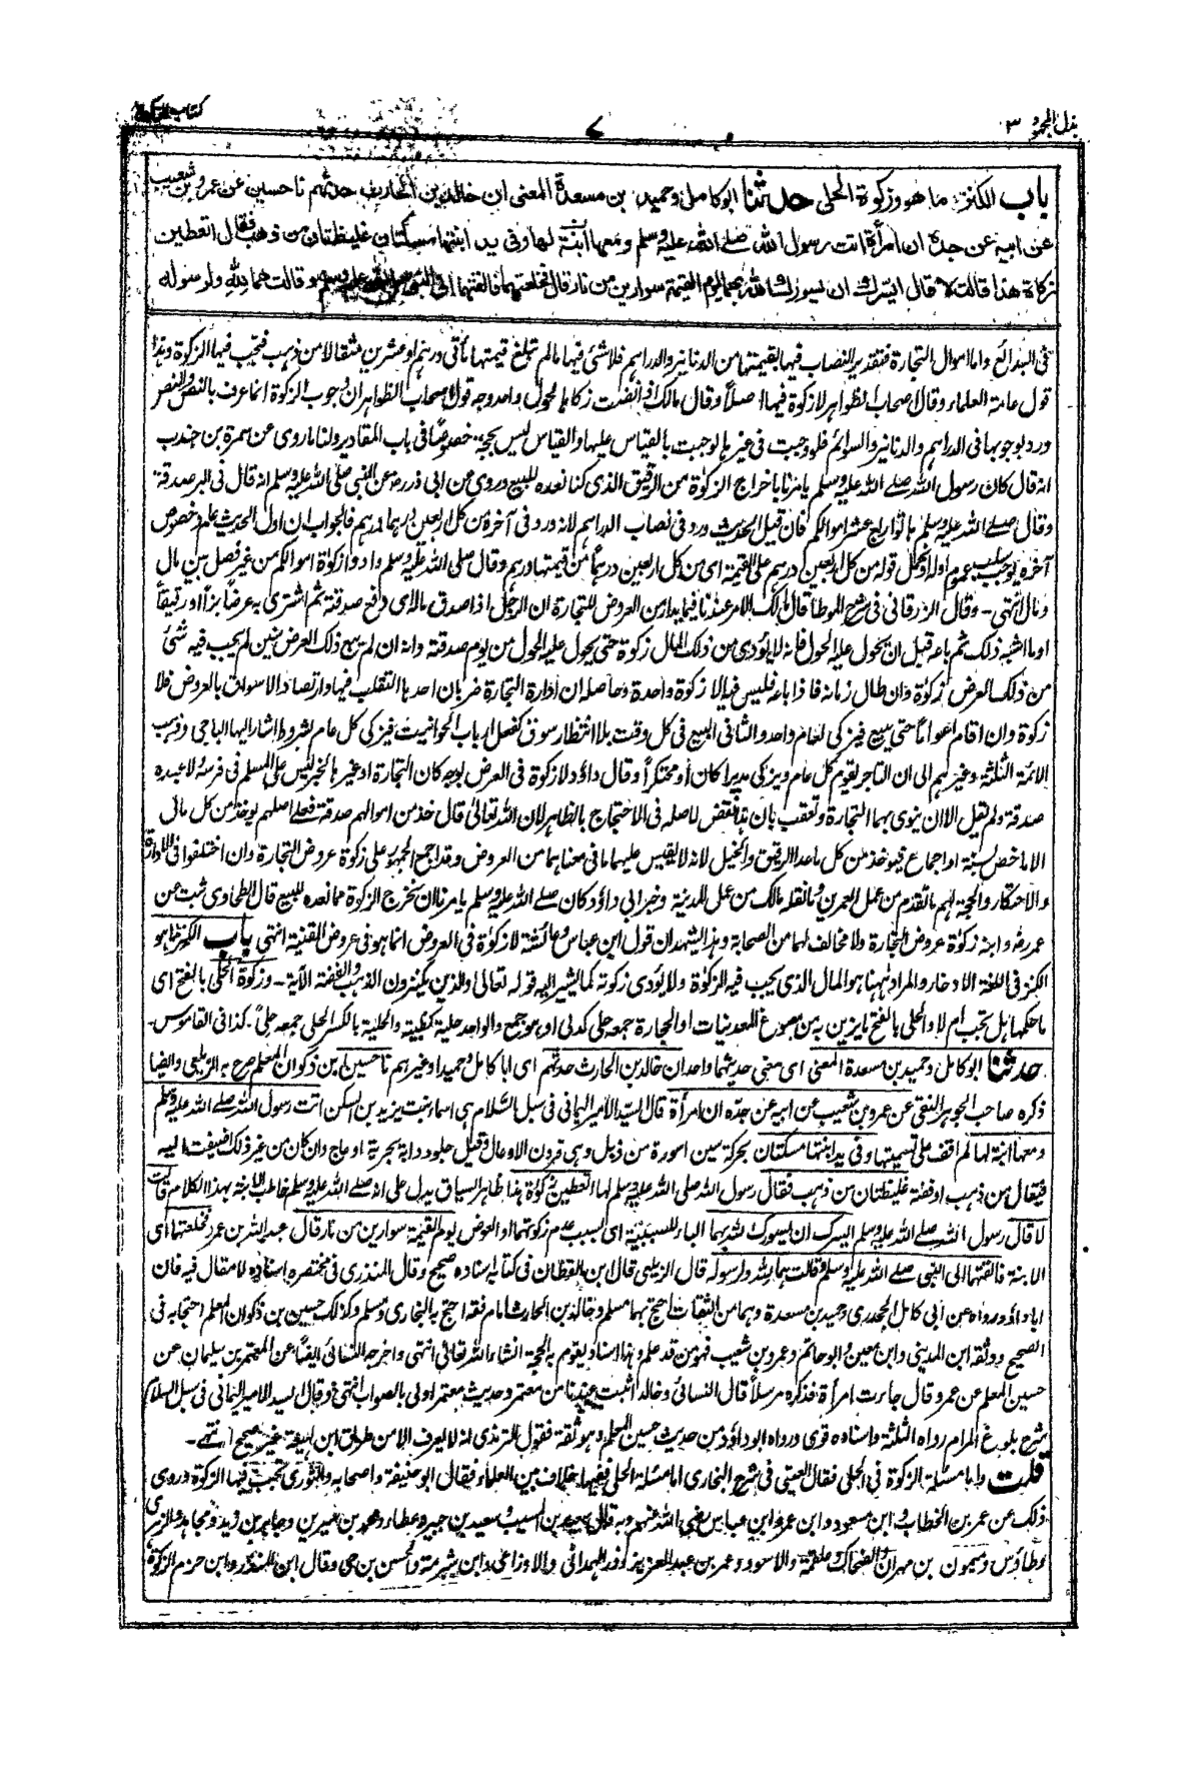 بذل المجهود ٣
٧
كتاب الزكوة
باب الكنز ما هو وزكوة الحلى حدثنا ابو كامل وحميد بن مسعدة المعنى ان خالد بن الحارث حدثهم نا حسين عن عمرو بن شعيب
عن ابيه عن جده ان امرأة اتت رسول الله صلے الله عليه وسلم ومعها ابنة لها وفى يد ابنتها مسكتان غليظتان من ذهب فقال اتعطين
زكاة هذا قالت لا قال ايسرك ان يسورك الله بهما يوم القيمة سوارين من نار قال فخلعتهما فالقتهما الى النبى صلى الله عليه وسلم وقالت هما لله ولرسوله
فى البدائع واما اموال التجارة فتقدير النصاب فيها بقيمتها من الدنانير والدراهم فلا شئ فيها ما لم تبلغ قيمتها مأتى درهم او عشرين مثقالا من ذهب فتجب فيها الزكوة وهذا
قول عامة العلماء وقال اصحاب الظواهر لا زكوة فيها اصلاً وقال مالك اذا نضت زكاها لحول واحد وجه قول اصحاب الظواهر ان وجوب الزكوة انما عرف بالنص والنص
ورد بوجوبها فى الدراهم والدنانير والسوائم فلو وجبت فى غيرها لوجبت بالقياس عليها والقياس ليس بحجة خصوصًا فى باب المقادير ولنا ما روى عن سمرة بن جندب
انه قال كان رسول الله صلے الله عليه وسلم يامرنا باخراج الزكوة من الرقيق الذى كنا نعده للبيع وروى عن ابى ذر رضه عن النبى صلى الله عليه وسلم انه قال فى البر صدقة
وقال صلے الله عليه وسلم هاتوا ربع عشر اموالكم فان قيل الحديث ورد فى نصاب الدراهم لانه ورد فى آخره من كل اربعين درهما درهم فالجواب ان اول الحديث عام وخصوص
آخره يوجب سلب عموم اوله او نحمل قوله من كل اربعين درهم على القيمة اى من كل اربعين درهمًا من قيمتها درهم وقال صلى الله عليه وسلم وادوا زكوة اموالكم من غير فصل بين مال
ومال انتهى ـ وقال الزرقانى فى شرح الموطا قال مالك الامر عندنا فيما يدار من العروض للتجارة ان الرجل اذا صدق ماله اى دفع صدقته ثم اشترى به عرضًا بزا او رقيقاً
او ما اشبه ذلك ثم باعه قبل ان يحول عليه الحول فانه لا يؤدى من ذلك المال زكوة حتى يحول عليه الحول من يوم صدقته وانه ان لم يبع ذلك العرض سنين لم يجب فيه شئ
من ذلك العرض زكوة وان طال زمانه فاذا باعه فليس فيه الا زكوة واحدة وحاصله ان ادارة التجارة ضربان احدهما التقلب فيها وارتصاد الاسواق بالعروض فلا
زكوة وان اقام اعواماً حتى يبيع فيزكى لعام واحد والثانى البيع فى كل وقت بلا انتظار سوق كفعل ارباب الحوانيت فيزكى كل عام بشروط اشار اليها الباجى وذهب
الائمة الثلثة وغيرهم الى ان التاجر يقوم كل عام ويزكى مديرا كان أو محتكراً وقال داؤد لا زكوة فى العرض بوجه كان لتجارة او غيرها لخبر ليس على المسلم فى فرسه ولا عبده
صدقة ولم يقل الا ان ينوى بهما التجارة وتعقب بان هذا نقض لاصله فى الاحتجاج بالظاهر لان الله تعالى قال خذ من اموالهم صدقة فعلى اصلهم يوخذ من كل مالى
الا ما خص بسنة او اجماع فيوخذ من كل ما عدا الرقيق والخيل لانه لا يقيس عليهما ما فى معناهما من العروض وقد اجمع الجمهور على زكوة عروض التجارة وان اختلفوا فى الادارة
والاحتكار والحجة لهم ما تقدم من عمل العمرين وما نقله مالك من عمل المدينة وخبر ابى داؤد كان صلے الله عليه وسلم يامرنا ان نخرج الزكوة مما نعده للبيع قال الطحاوى ثبت عن
عمر رضه وابنه زكوة عروض التجارة ولا مخالف لهما من الصحابة وهذا يشهد ان قول ابن عباس وعائشة لا زكوة فى العروض انما هو فى عروض القنية انتهى باب الكنز ما هو
الكنز فى اللغة الادخار والمراد ههنا هو المال الذى يجب فيه الزكوة ولا يؤدى زكوته كما يشير اليه قوله تعالى والذين يكنزون الذهب والفضة الآية ـ وزكوة الحلى بالفتح اى
ما حكمها هل تجب ام لا والحلى بالفتح ما يزين به من مصوغ المعدنيات او الحجارة جمعه حلى كدلى او هو جمع والواحد حلية كظبية والحلية بالكسر الحلى جمعه حلى ـ كذا فى القاموس ـ
حدثنا ابو كامل وحميد بن مسعدة المعنى اى معنى حديثهما واحد ان خالد بن الحارث حدثهم اى ابا كامل وحميدا وغيرهم نا حسين بن ذكوان المعلم صرح به الزيلعى وايضا
ذكره صاحب الجوهر النقى عن عمرو بن شعيب عن ابيه عن جده ان امرأة قال السيد الامير اليمانى فى سبل السلام هى اسماء بنت يزيد بن السكن اتت رسول الله صلے الله عليه وسلم
ومعها ابنة لها لم اقف على تسميتها وفى يد ابنتها مسكتان بحركة سين اسورة من ذبل وهى قرون الاوعال وقيل جلود دابة بحرية او عاج وان كان من غير ذلك اضيفت اليه
فيقال من ذهب او فضة غليظتان من ذهب فقال رسول الله صلى الله عليه وسلم لها اتعطين زكوة هذا ظاهر السياق يدل على انه صلے الله عليه وسلم خاطب الابنة بهذا الكلام قالت
لا قال رسول الله صلے الله عليه وسلم ايسرك ان يسورك الله بهما الباء للسببية اى بسبب عدم زكوتهما او العوض يوم القيمة سوارين من نار قال عبد الله بن عمرو فخلعتها اى
الابنة فالقتهما الى النبى صلے الله عليه وسلم وقالت هما لله ولرسوله قال الزيلعى قال ابن القطان فى كتابه اسناده صحيح وقال المنذرى فى مختصره اسناده لا مقال فيه فان
ابا داؤد رواه عن ابى كامل الجحدرى وحميد بن مسعدة وهما من الثقات احتج بهما مسلم وخالد بن الحارث امام فقه احتج به البخارى ومسلم وكذلك حسين بن ذكوان المعلم احتجا به فى
الصحيح ووثقه ابن المدينى وابن معين وابو حاتم وعمرو بن شعيب فهو من قد علم وهذا اسناد يقوم به الحجة انشاء الله تعالى انتهى واخرجه النسائى ايضًا عن المعتمر بن سليمان عن
حسين المعلم عن عمرو قال جاءت امرأة فذكره مرسلاً قال النسائى وخالد اثبت عندنا من معتمر وحديث معتمر اولى بالصواب انتهى وقال السيد الامير اليمانى فى سبل السلام
شرح بلوغ المرام رواه الثلثة واسناده قوى ورواه ابو داؤد من حديث حسين المعلم وهو ثقة فقول الترمذى انه لا يعرف الا من طريق ابن لهيعة غير صحيح انتهے ـ
قلت واما مسئلة الزكوة فى الحلى فقال العينى فى شرح البخارى اما مسئلة الحلى ففيها خلاف بين العلماء فقال ابو حنيفة واصحابه والثورى تجب فيها الزكوة وروى
ذلك عن عمر بن الخطاب وابن مسعود وابن عمر وابن عباس رضى الله عنهم وبه قال سعيد بن المسيب وسعيد بن جبير وعطاء ومحمد بن سيرين وجابر بن زيد ومجاهد والزهرى
وطاؤس وميمون بن مهران والضحاك وعلقمة والاسود وعمر بن عبد العزيز وذر الهمدانى والاوزاعى وابن شبرمة والحسن بن حى وقال ابن المنذر وابن حزم الزكوة